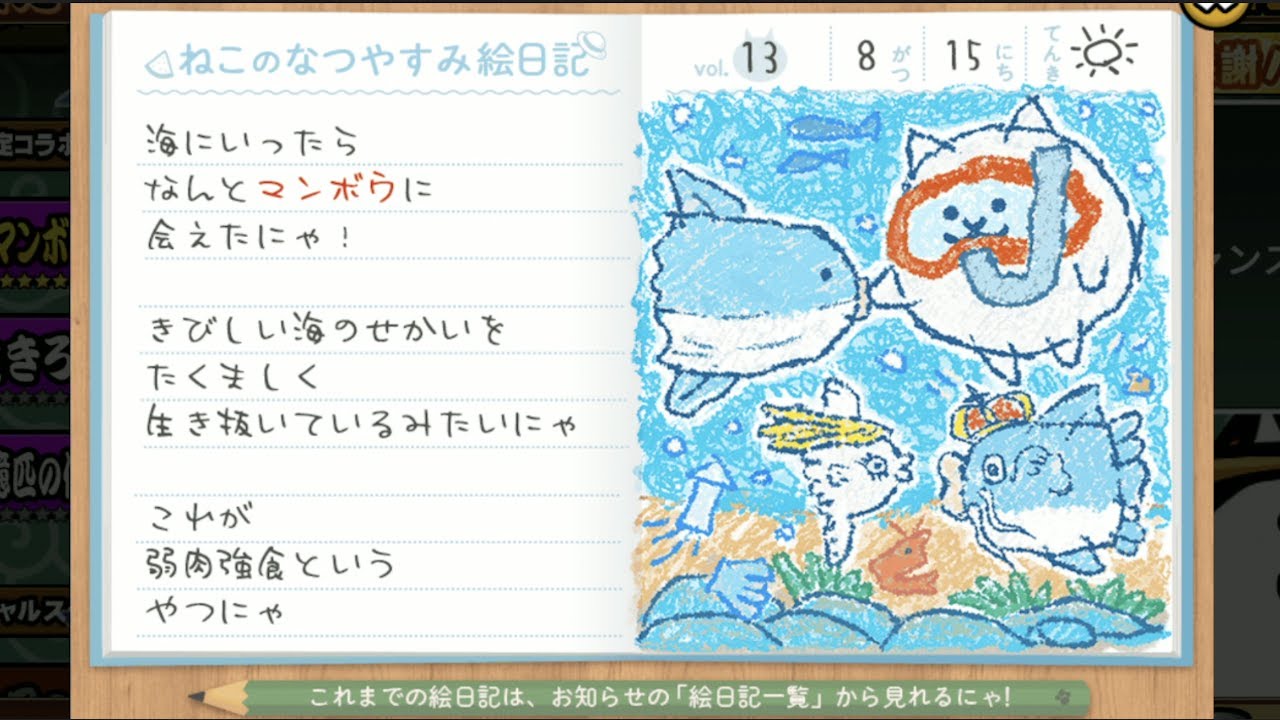 ねこのなつやすみ絵日記
vol. 13
8がつ
15にち
てんき
海にいったら
なんとマンボウに
会えたにゃ！
きびしい海のせかいを
たくましく
生き抜いているみたいにゃ
これが
弱肉強食という
やつにゃ
これまでの絵日記は、お知らせの「絵日記一覧」から見れるにゃ!
定コラボ
マンボ
ときろ
匹の
ャルス
謝
ンス